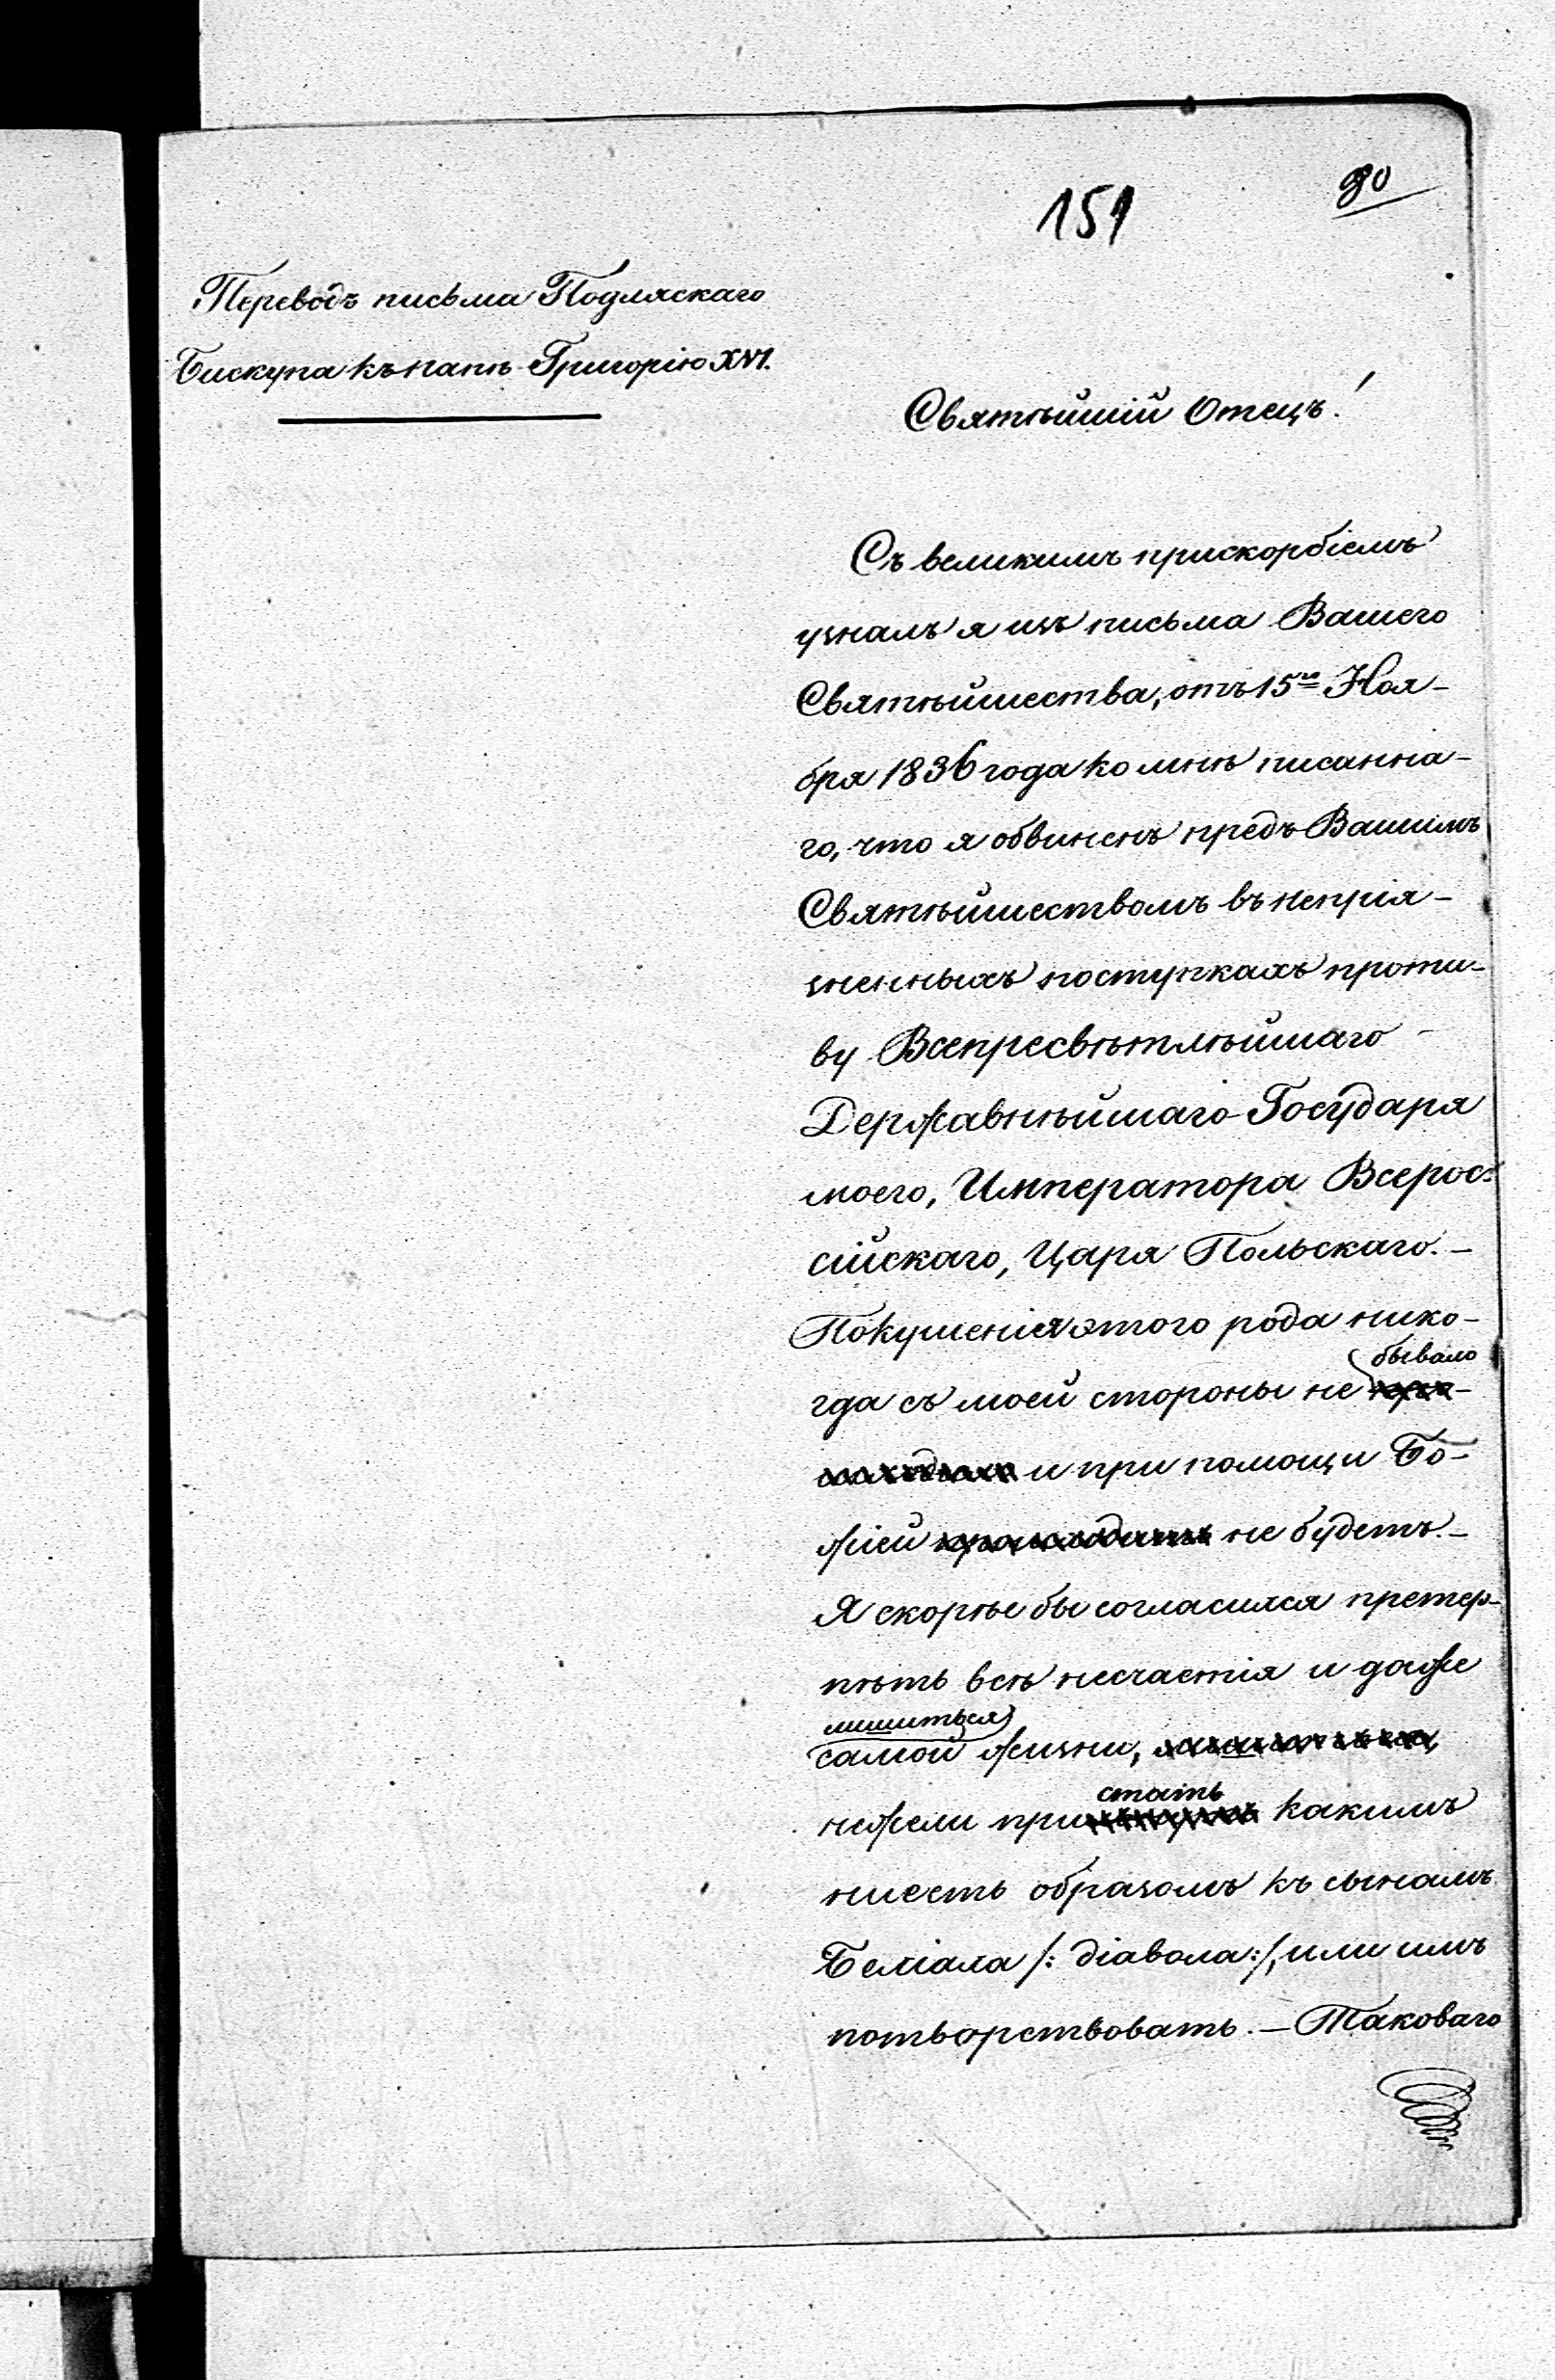 80
151
Переводъ письма Подляскаго
Бискупа къ папѣ Григорію XVI.
Святѣйшій Отецъ!
Съ великимъ прискорбіемъ
узналъ я изъ письма Вашего
Святѣйшества, отъ 15го Ноя-
бря 1836 года ко мнѣ писанна-
го, что я обвиненъ предъ Вашимъ
Святѣйшествомъ въ непрія-
зненныхъ поступкахъ проти-
ву Всепресвѣтлѣйшаго
Державнѣйшаго Государя
моего, Императора Всерос-
сійскаго, Царя Польскаго. —
Покушенія этого рода нико-
бывало
гда съ моей стороны не
и при помощи Бо-
жіей не будетъ. —
Я скорѣе бы согласился претер-
пѣть всѣ несчастія и даже
лишиться
самой жизни,
стать
нежели при какимъ
ниесть образомъ къ сынамъ
Беліала /: діавола:/, или имъ
потворствовать. — Таковаго